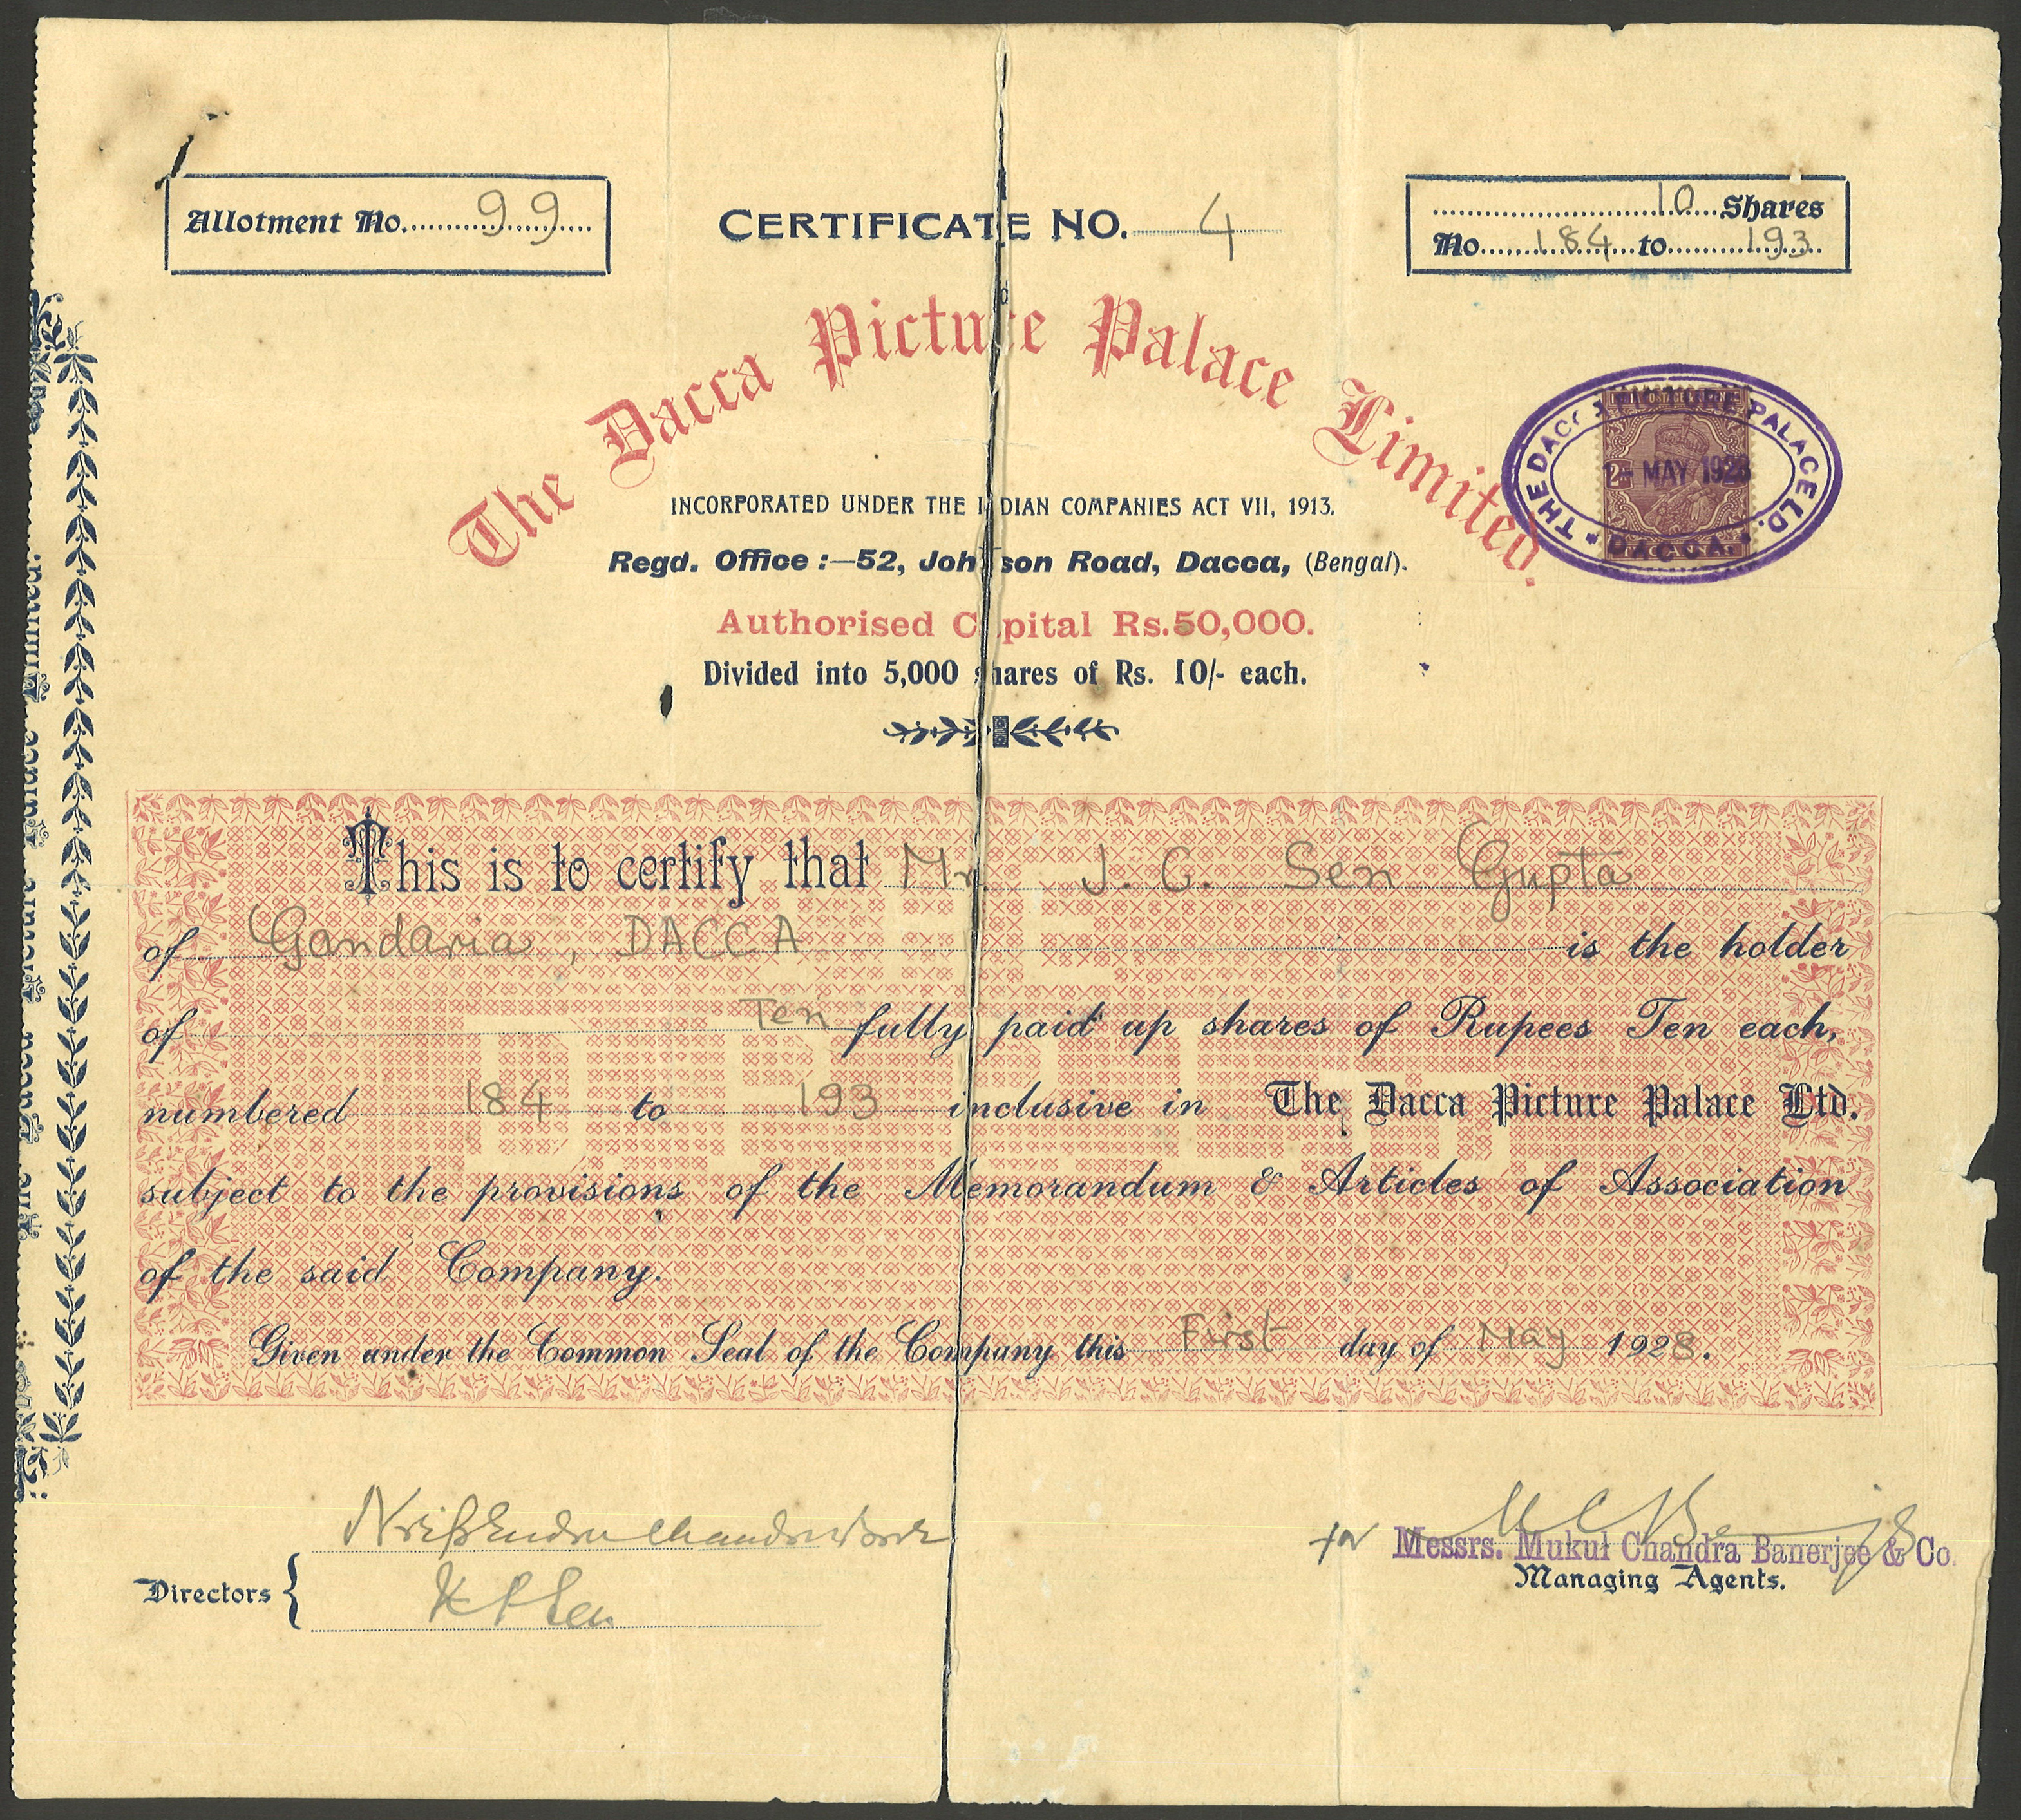 Allotment No. 99
CERTIFICATE NO. 4
10 Shares
No. 184 to 193
The Dacca Picture Palace Limited.
INCORPORATED UNDER THE INDIAN COMPANIES ACT VII, 1913.
Regd. Office :—52, Johnson Road, Dacca, (Bengal).
Authorised Capital Rs.50,000.
Divided into 5,000 shares of Rs. 10/- each.
THE DACCA PICTURE PALACE LD.
MAY 1928
DACCA.
The Dacca Picture Palace Limited.
This is to certify that Mr. J. C. Sen Gupta
of Gandaria, DACCA is the holder
of Ten fully paid up shares of Rupees Ten each,
numbered 184 to 193 inclusive in The Dacca Picture Palace Ltd.
subject to the provisions of the Memorandum & Articles of Association
of the said Company.
Given under the Common Seal of the Company this First day of May 1928.
Directors
for Messrs. Mukul Chandra Banerjee & Co.
Managing Agents.